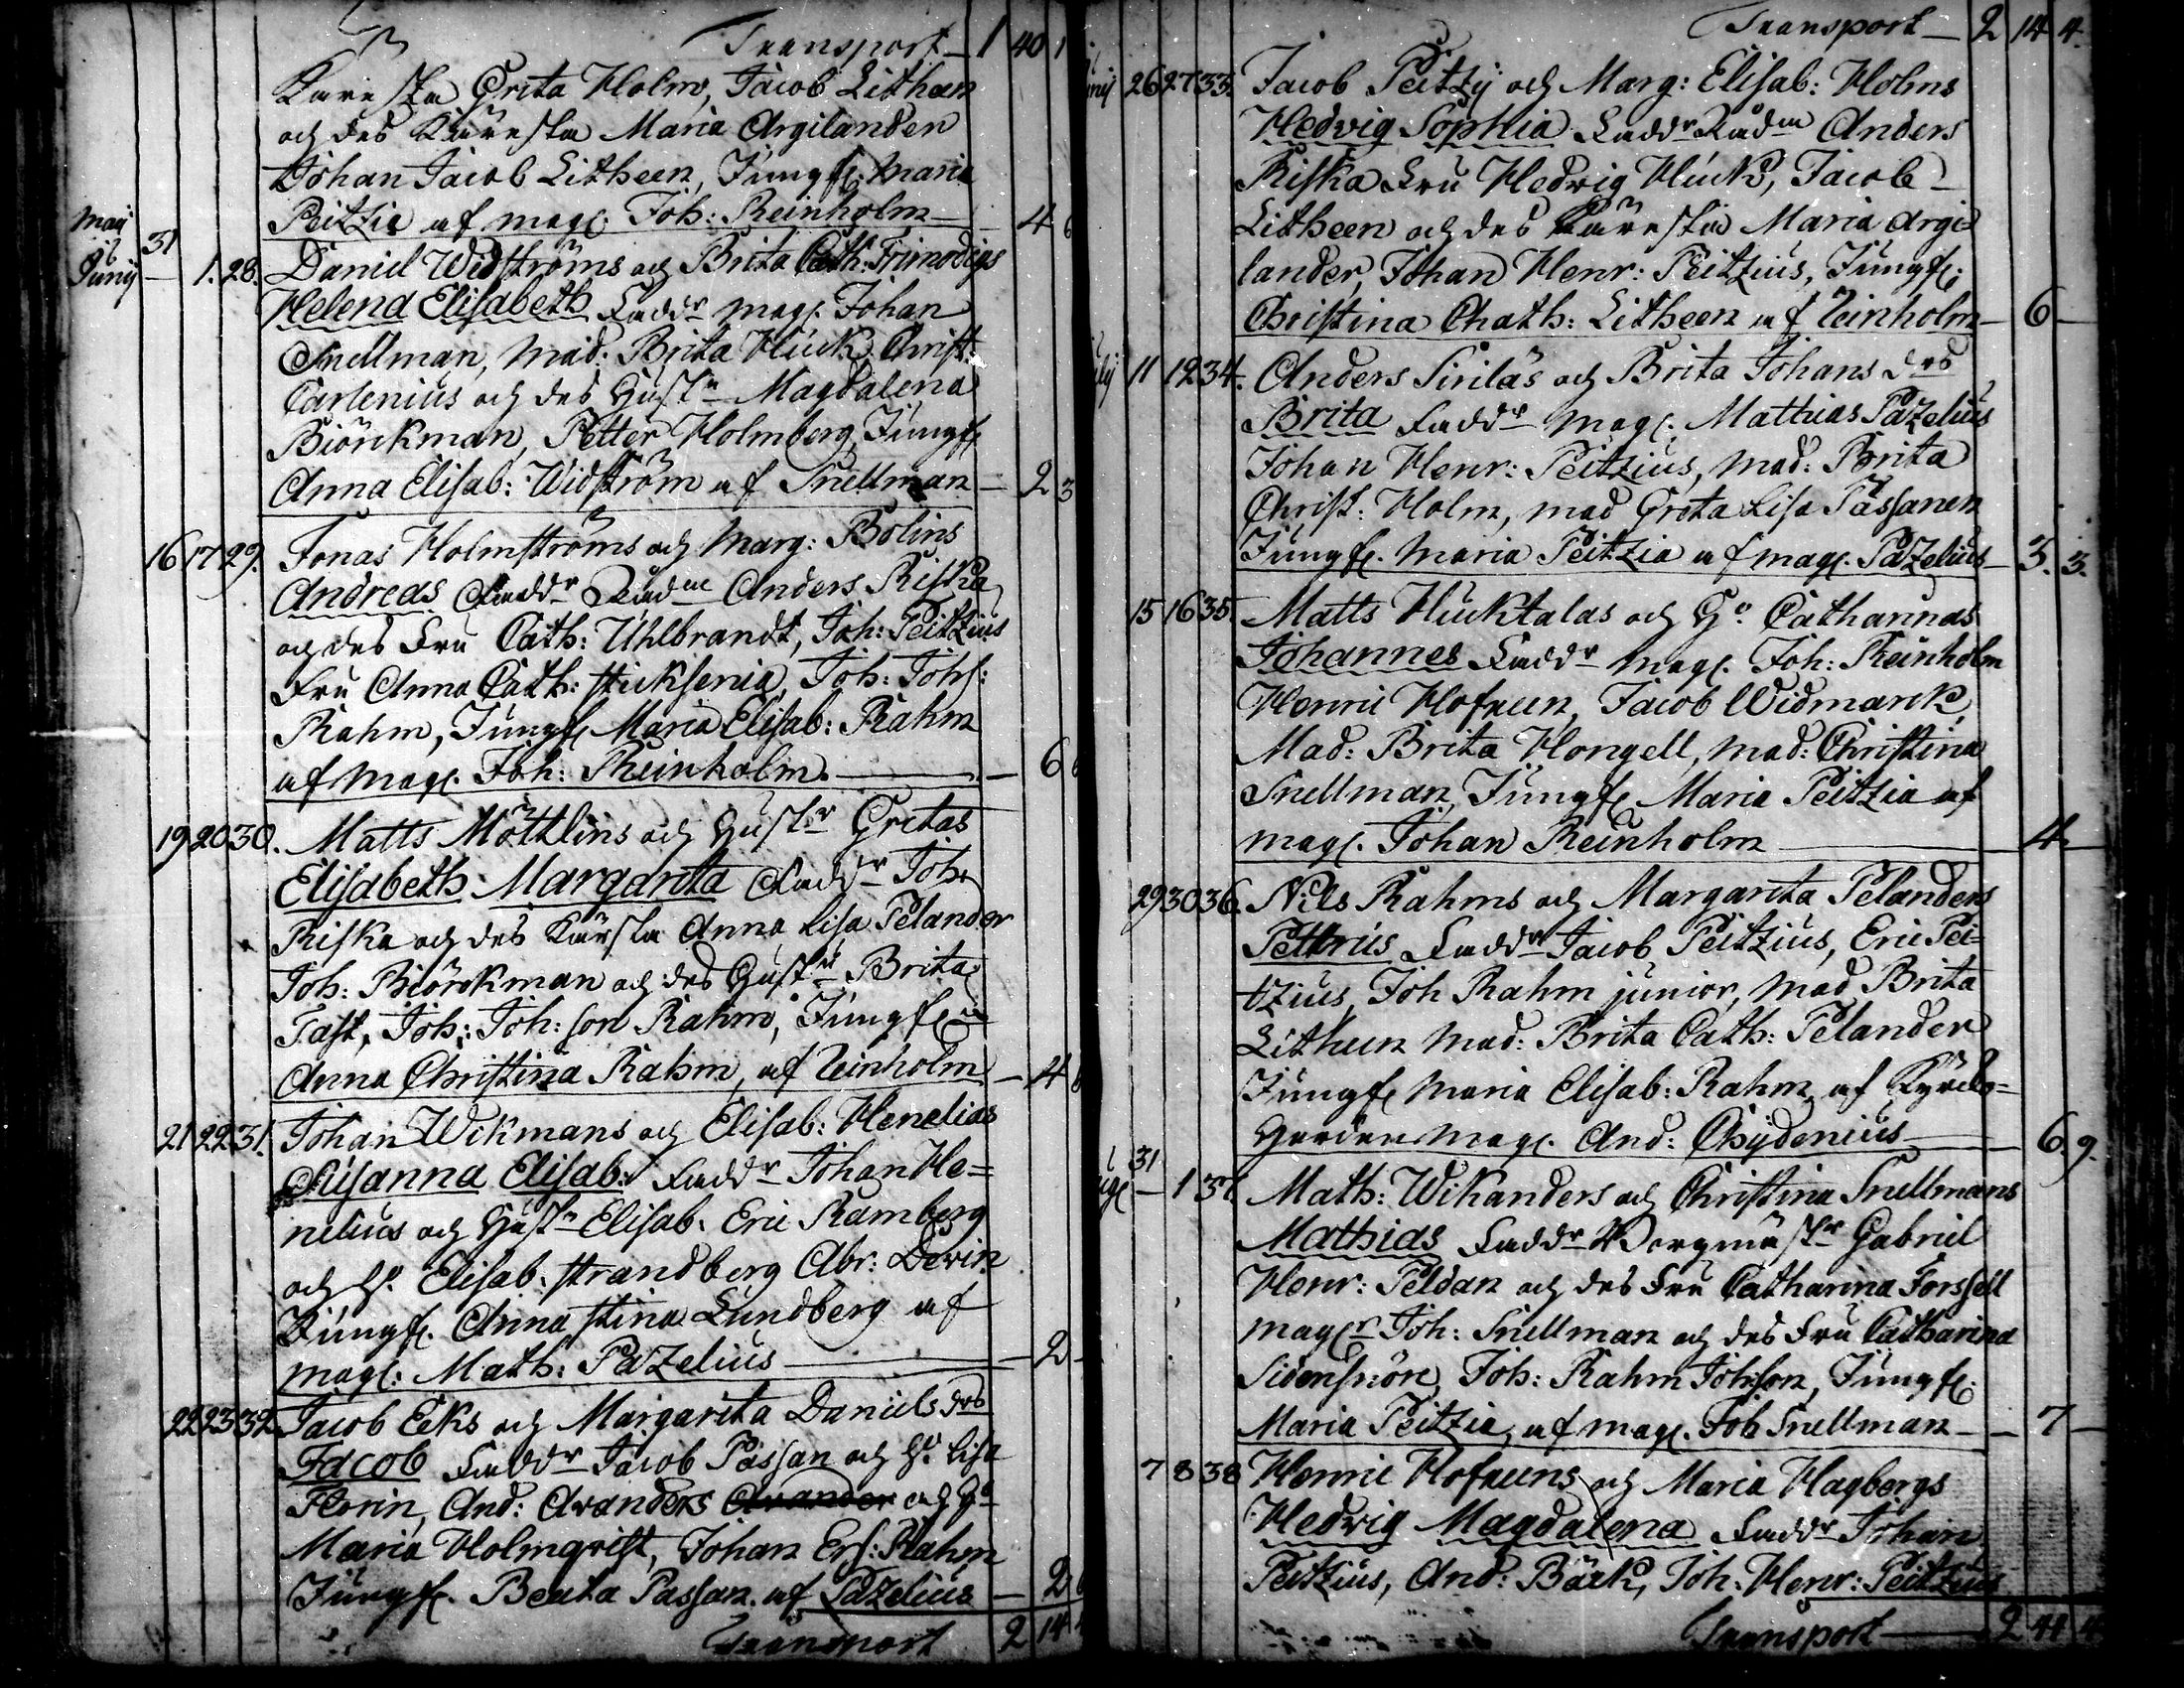 Transport 1 40 1
Käresta Greta Holm, Jacob Litheen
och des Käresta Maria Argilanden
Johan Jacob Litheen, Jungf. Maria
Peitzia af mag. Joh: Reinholm 4 6
Maij
Junij 31 1. 28. Daniel Widströms och Brita Cath: Frimodigs
Helena Elisabeth Faddr mag. Johan
Snellman, Mad: Brita Huck, Christ:
Carlenius och des Hustu Magdalena
Biörckman, Petter Holmberg Jungf
Anna Elisab: Widström af Snellman 2 3
16 17 29. Jonas Holmströms och Marg: Bolins
Andreas Faddr Rådm Anders Riska
och des Fru Cath: Uhlbrandt, Joh: Peitzius
Fru Anna Cath: Stuksenia, Joh: Johs:
Rahm, Jungf Maria Elisab: Rahm
af mag. Joh: Reinholm 6
19 20 30. Matts Möttlins och Hustr Gretas
Elisabeth Margareta Faddr Joh:
Riska och des Kärsta Anna Lisa Pelander
Joh: Biörckman och des Hustu Brita
Fast, Joh: Joh: son Rahm, Jungf
Anna Christina Rahm, af Reinholm 4 6
21 22 31. Johan Wikmans och Elisab: Henelias
Susanna Elisab: Faddr Johan He=
nelius och Hustr Elisab. Eric Ramberg
och H. Elisab. Strandberg Abr: Devin
Jungf. Anna Stina Lundberg af
mag: Math: Pazelius 2
22 23 32 Jacob Eeks och Margareta Daniels drs
Jacob Faddr Jacob Passan och H. Lisa
Florin, And: Aranders och Ho
Maria Holmqvist, Johan Ers: Rahm
Jungf. Beata Passan. af Pazelius 2
Transport 2 14
Transport 2 14 4.
26 27 33. Jacob Peitzij och Marg: Elisab: Holms
Hedvig Sophia Faddr Rådm Anders
Riska Fru Hedvig Huck, Jacob
Litheen och des Käresta Maria Argi=
lander, Johan Henr: Peitzius, Jungf:
Christina Chath: Litheen af Reinholm 6
11 12 34. Anders Sirilas och Brita Johans drs
Brita Faddr Mag. Mathias Pazelius
Johan Henr: Peitzius, Mad: Brita
Christ: Holm, Mad Greta Lisa Passanen
Jungf. Maria Peitzia af mag. Pazelius 3. 3.
15 16 35. Matts Hucktalas och Ho Catharinas
Johannes Faddr Mag. Joh: Reinholm
Henric Hofreen, Jacob Widmarck
Mad: Brita Hongell, Mad: Christina
Snellman, Jungf Maria Peitzia af
mag. Johan Reinholm 4
29 30 36. Nils Rahms och Margareta Pelanders
Pettrus Faddr Jacob Peitzius, Eric Pei=
tzius, Joh Rahm junior, Mad Brita
Litheen Mad: Brita Cath: Pelander
Jungf Maria Elisab: Rahm, af Kyrcko=
Herden mag. And: Chydenius 6 9.
31 1 37. Math: Wikanders och Christina Snellmans
Mathias Faddr Borgmästr Gabriel
Henr: Peldan och des Fru Catharina Forssell
Magr Joh: Snellman och des Fru Catharina
Sidensnöre, Joh: Rahm Joh:son, Jungf:
Maria Peitzia, af mag. Joh Snellman 7
7 8 38 Henric Hofreens och Maria Hagbergs
Hedvig Magdalena Faddr Johan
Peitzius, And: Bäck, Joh: Henr: Peitzius
Transport 2 44 4